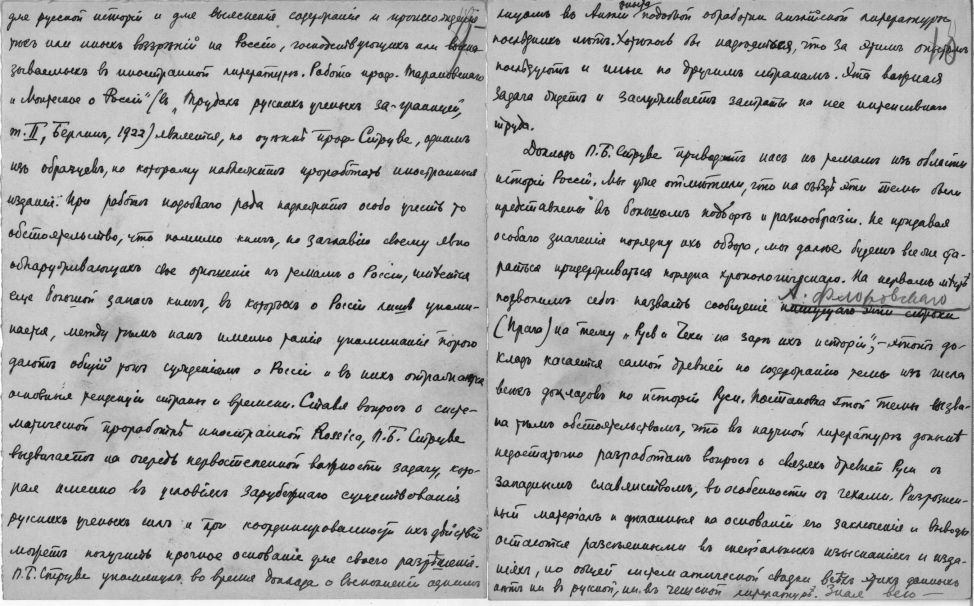 для русской исторіи и для выясненія содержанія и происхожденія
тѣхъ или иныхъ воззрѣній на Россію, господствующихъ или
зываемыхъ въ иностранной литературѣ. Работа проф. Тарановскаго
„ Монтескье о Россіи" (въ „Трудахъ русскихъ ученыхъ за-границей",
т. II, Берлинъ, 1922) является, по оцѣнкѣ проф. Струве, однимъ
изъ образцовъ, по которому надлежитъ проработать иностранныя
изданія. При работѣ подобнаго рода надлежитъ особо учесть то
обстоятельство, что помимо книгъ, по заглавію своему явно
обнаруживающихъ свое отношеніе къ темамъ о Россіи, имѣется
еще большой запасъ книгъ, въ которыхъ о Россіи лишь упоми-
нается, между тѣмъ какъ именно такія упоминанія порою
даютъ общій тонъ сужденіямъ о Россіи и въ нихъ отражаются
основныя тенденціи страны и времени. Ставя вопросъ о систе-
матической проработкѣ иностранной Rossica, П. Б. Струве
выдвигаетъ на очередь первостепенной важности задачу, кото-
рая именно въ условіяхъ зарубежнаго существованія
русскихъ ученыхъ силъ и при координированности ихъ дѣйствій
можетъ получить прочное основаніе для своего разрѣшенія.
П. Б. Струве упомянулъ во время доклада о выполненіи однимъ
лицомъ въ Англіи подобной обработки англійской литературы
послѣднихъ лѣтъ. Хотѣлось бы надѣяться, что за этимъ опытомъ
послѣдуютъ и иные по другимъ странамъ. Эта важная
задача ждетъ и заслуживаетъ затраты на нее интенсивнаго
труда.
Докладъ П. Б. Струве приводитъ насъ къ темамъ изъ области
исторіи Россіи. Мы уже отмѣтили, что на съѣздѣ эти темы были
представлены въ большомъ подборѣ и разнообразіи. Не придавая
особаго значенія порядку ихъ обзора, мы далѣе будемъ все же ста-
раться придерживаться порядка хронологическаго. На первомъ мѣстѣ
А. Флоровскаго
позволимъ себѣ назвать сообщеніе пишущаго эти строки
(Прага) на тему „Русь и Чехи на зарѣ ихъ исторіи", – этотъ до-
кладъ касается самой древней по содержанію темы изъ числа
всѣхъ докладовъ по исторіи Руси. Постановка этой темы вызва-
на тѣмъ обстоятельствомъ, что въ научной литературѣ донынѣ
недостаточно разработанъ вопросъ о связяхъ древней Руси съ
западнымъ славянствомъ, въ особенности съ чехами. Разрознен-
ный матеріалъ и сдѣланныя на основаніи его заключенія и выводы
остаются разсѣянными въ спеціальныхъ изысканіяхъ и изда-
ніяхъ, но общей систематической сводки всѣхъ этихъ данныхъ
нѣтъ ни въ русской, ни въ чешской литературѣ. Зная всю –